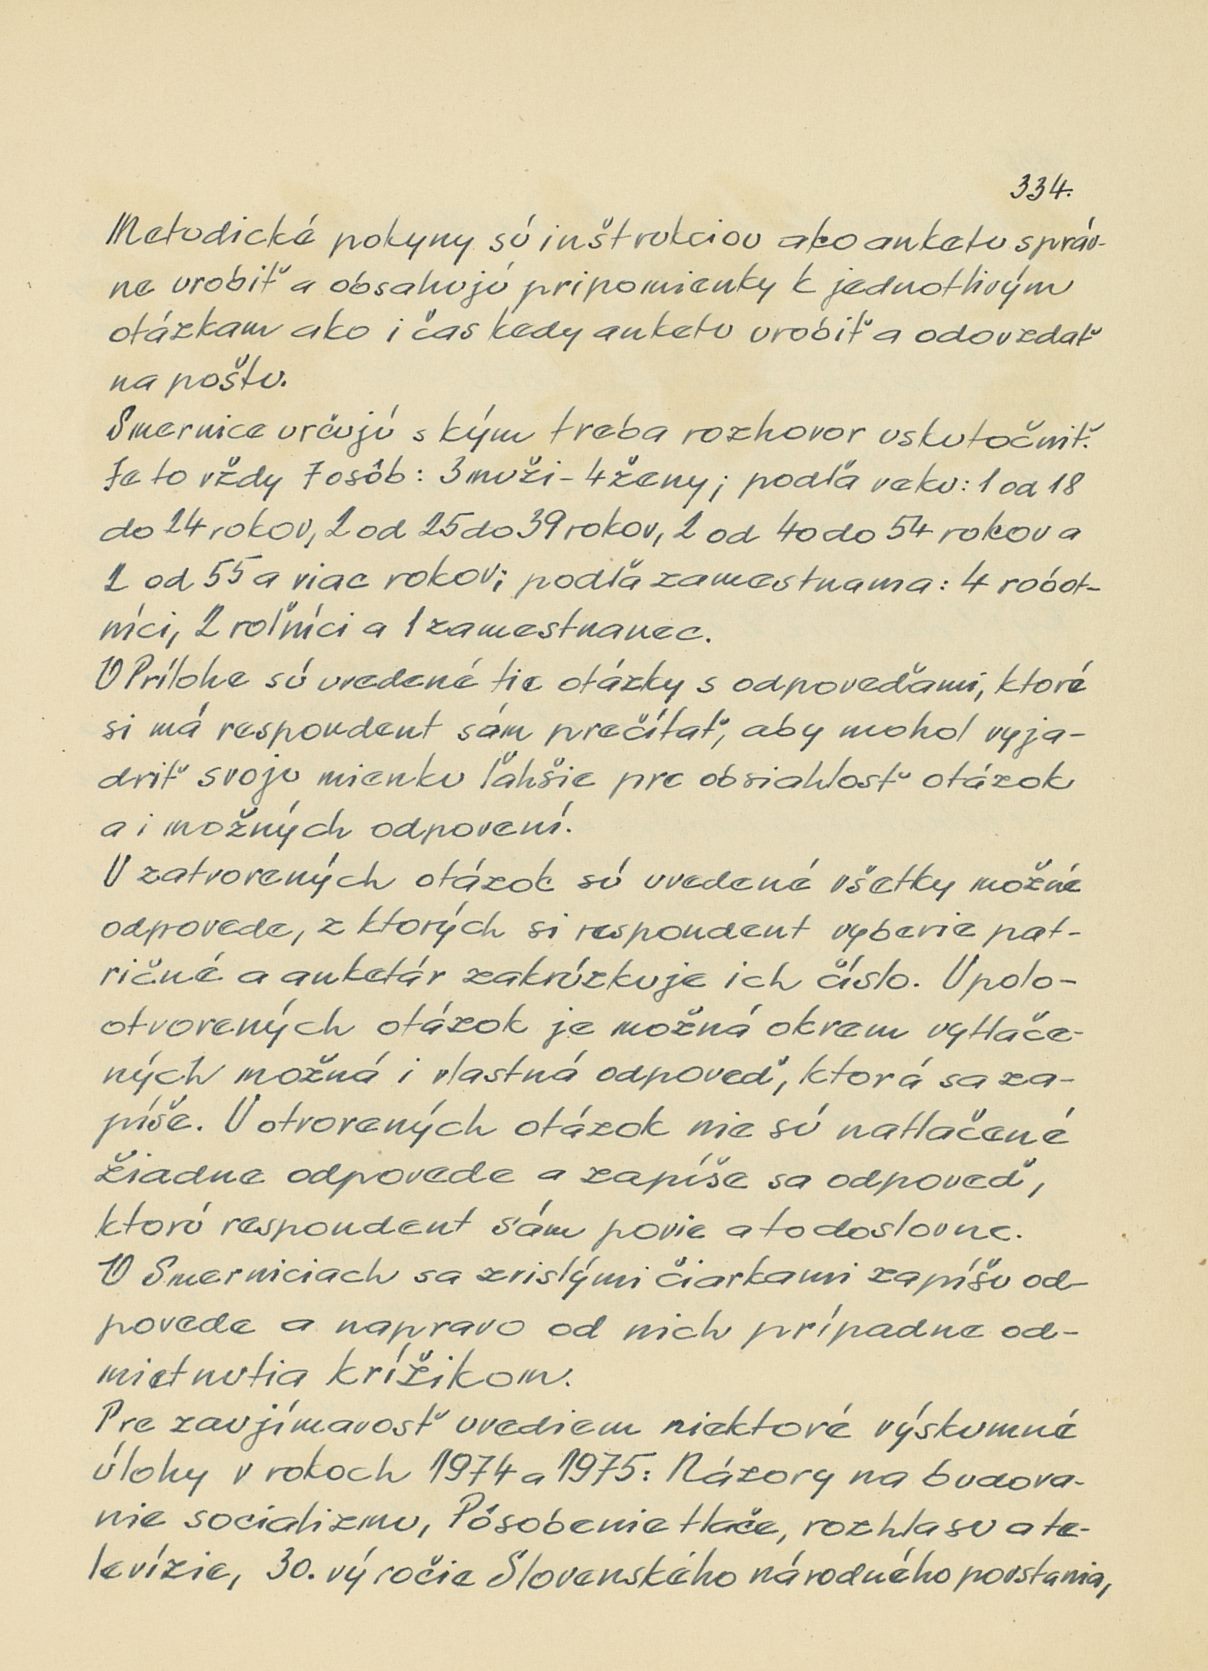 334.
Metodické pokyny sú inštrukciou ako anketu správ-
ne urobiť a obsahujú pripomienky k jednotlivým
otázkam ako i čas kedy anketu urobiť a odovzdať
na poštu.
Smernice určujú s kým treba rozhovor uskutočniť.
Je to vždy 7 osôb: 3 muži - 4 ženy; podľa veku: 1 od 18
do 24 rokov, 2 od 25 do 39 rokov, 2 od 40 do 54 rokov a
2 od 55 a viac rokov; podľa zamestnania: 4 robot-
níci, 2 roľníci a 1 zamestnanec.
V Prílohe sú uvedené tie otázky s odpoveďami, ktoré
si má respondent sám prečítať, aby mohol vyja-
driť svoju mienku ľahšie pre obsiahlosť otázok
a i možných odpovení.
U zatvorených otázok sú uvedené všetky možné
odpovede, z ktorých si respondent vyberie pat-
ričné a anketár zakrúzkuje ich číslo. U polo-
otvorených otázok je možná okrem vytlače-
ných možná i vlastná odpoveď, ktorá sa za-
píše. U otvorených otázok nie sú natlačené
žiadne odpovede a zapíše sa odpoveď,
ktorú respondent sám povie a to doslovne.
V Smerniciach sa zvislými čiarkami zapíšu od-
povede a napravo od nich prípadne od-
mietnutia krížikom.
Pre zaujímavosť uvediem niektoré výskumné
úlohy v rokoch 1974 a 1975: Názory na budova-
nie socializmu, Pôsobenie tlače, rozhlasu a te-
levízie, 30. výročie Slovenského národného povstania,